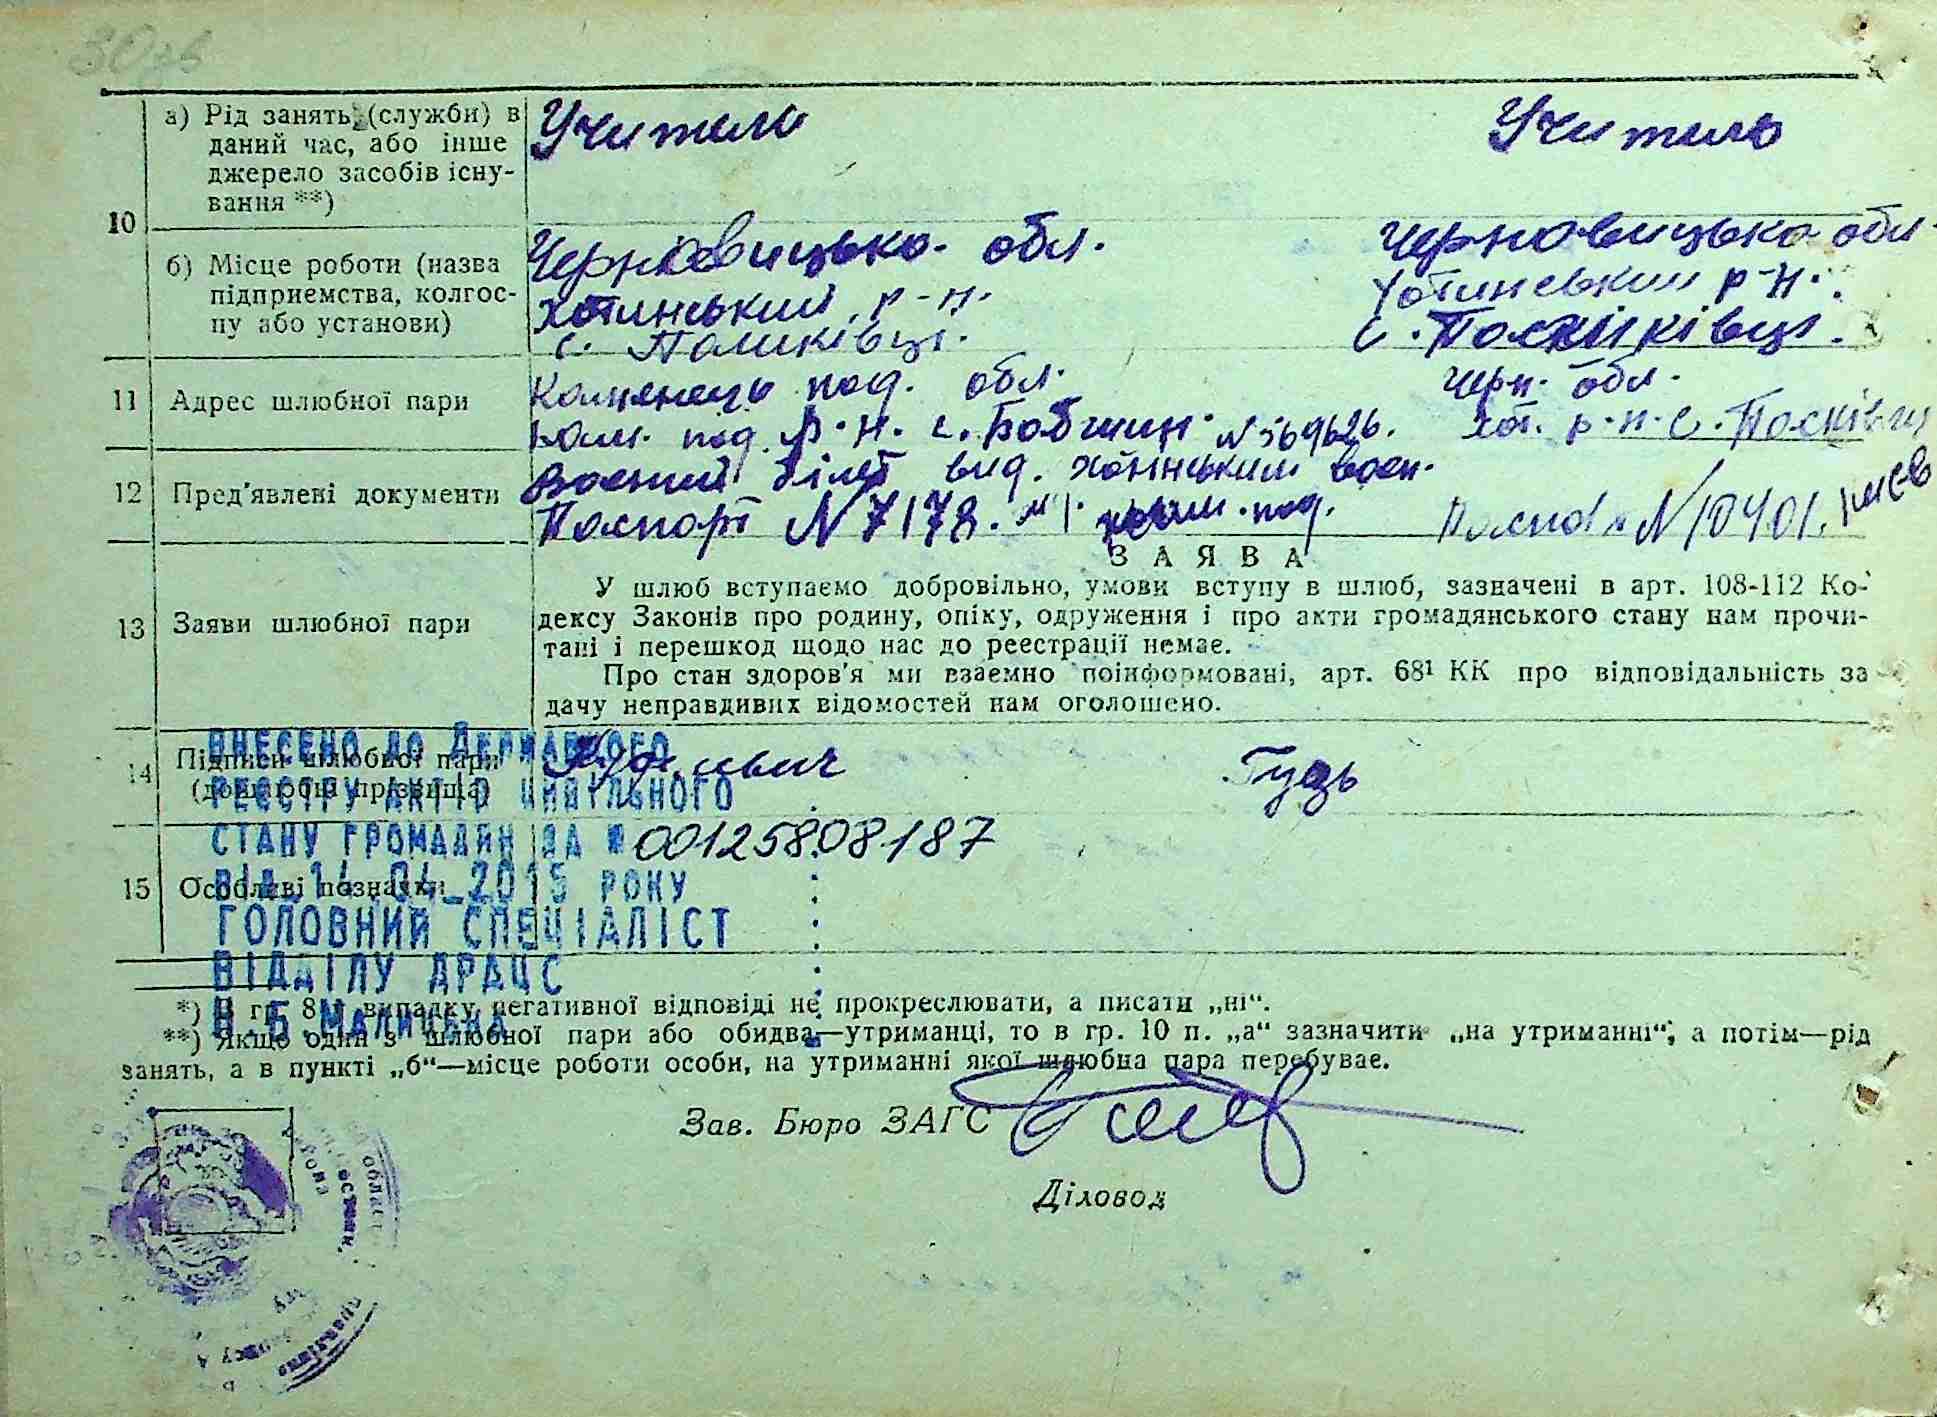 30зв
а) Рід занять (служби) в
даний час, або інше
джерело засобів існу-
вання **)
Учитель
Учитель
10
б) Місце роботи (назва
підприємства, колгос-
пу або установи)
Черновицько. обл.
Хотинський р-н.
с.
Черновицько обл.
Хотинський р-н.
с.
11
Адрес шлюбної пари
Каменець под. обл.
Кам. под. р-н. с. Бабшин.
Черн. обл.
Хот. р-н. с.
12
Пред'явлені документи
Воєний білет вид. воєн.
Паспорт N 7178.
N 10401.
13
Заяви шлюбної пари
ЗАЯВА
У шлюб вступаємо добровільно, умови вступу в шлюб, зазначені в арт. 108-112 Ко-
дексу Законів про родину, опіку, одруження і про акти громадянського стану нам прочи-
тані і перешкод щодо нас до реестрації немає.
Про стан здоров'я ми взаємно поінформовані, арт. 68¹ КК про відповідальність за
дачу неправдивих відомостей нам оголошено.
14
Підписи шлюбної пари
(дошлюбні прізвища)
Гудзь
ВНЕСЕНО ДО ДЕРЖАВНОГО
РЕЄСТРУ АКТІВ ЦИВІЛЬНОГО
СТАНУ ГРОМАДЯН ЗА № 00125808187
ВІД 14 04 2015 РОКУ
ГОЛОВНИЙ СПЕЦІАЛІСТ
ВІДДІЛУ ДРАЦС
15
Особливі позначки
*) В гр. 8 в випадку негативної відповіді не прокреслювати, а писати „ні“.
**) Якщо один з шлюбної пари або обидва—утриманці, то в гр. 10 п. „а“ зазначити „на утриманні“, а потім—рід
занять, а в пункті „б“—місце роботи особи, на утриманні якої шлюбна пара перебуває.
Зав. Бюро ЗАГС
Діловод